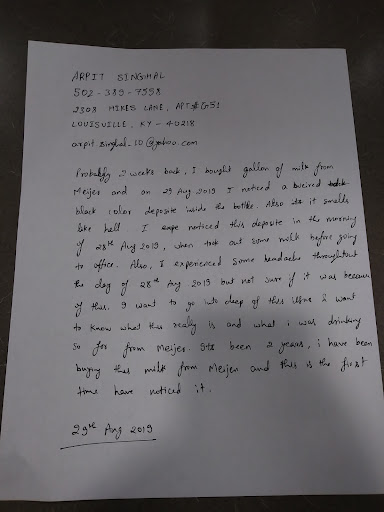 ARPIT SINGHAL
502-389-7558
2308 HIKES LANE, APT#G51
LOUISVILLE, KY - 40218
arpit.singhal_10@yahoo.com
Probably 2 weeks back, I bought gallon of milk from
Meijer and on 29 Aug 2019 I noticed a weired
black color deposite inside the bottle. Also it smells
like hell. I noticed this deposite in the morning
of 28th Aug 2019, when took out some milk before going
to office. Also, I experienced some headache throughtout
the day of 28th Aug 2019 but not sure if it was because
of this. I want to go into deep of this issue & want
to know what this really is and what i was drinking
so far from Meijer. Its been 2 years, i have been
buying this milk from Meijer and this is the first
time have noticed it.
29th Aug 2019